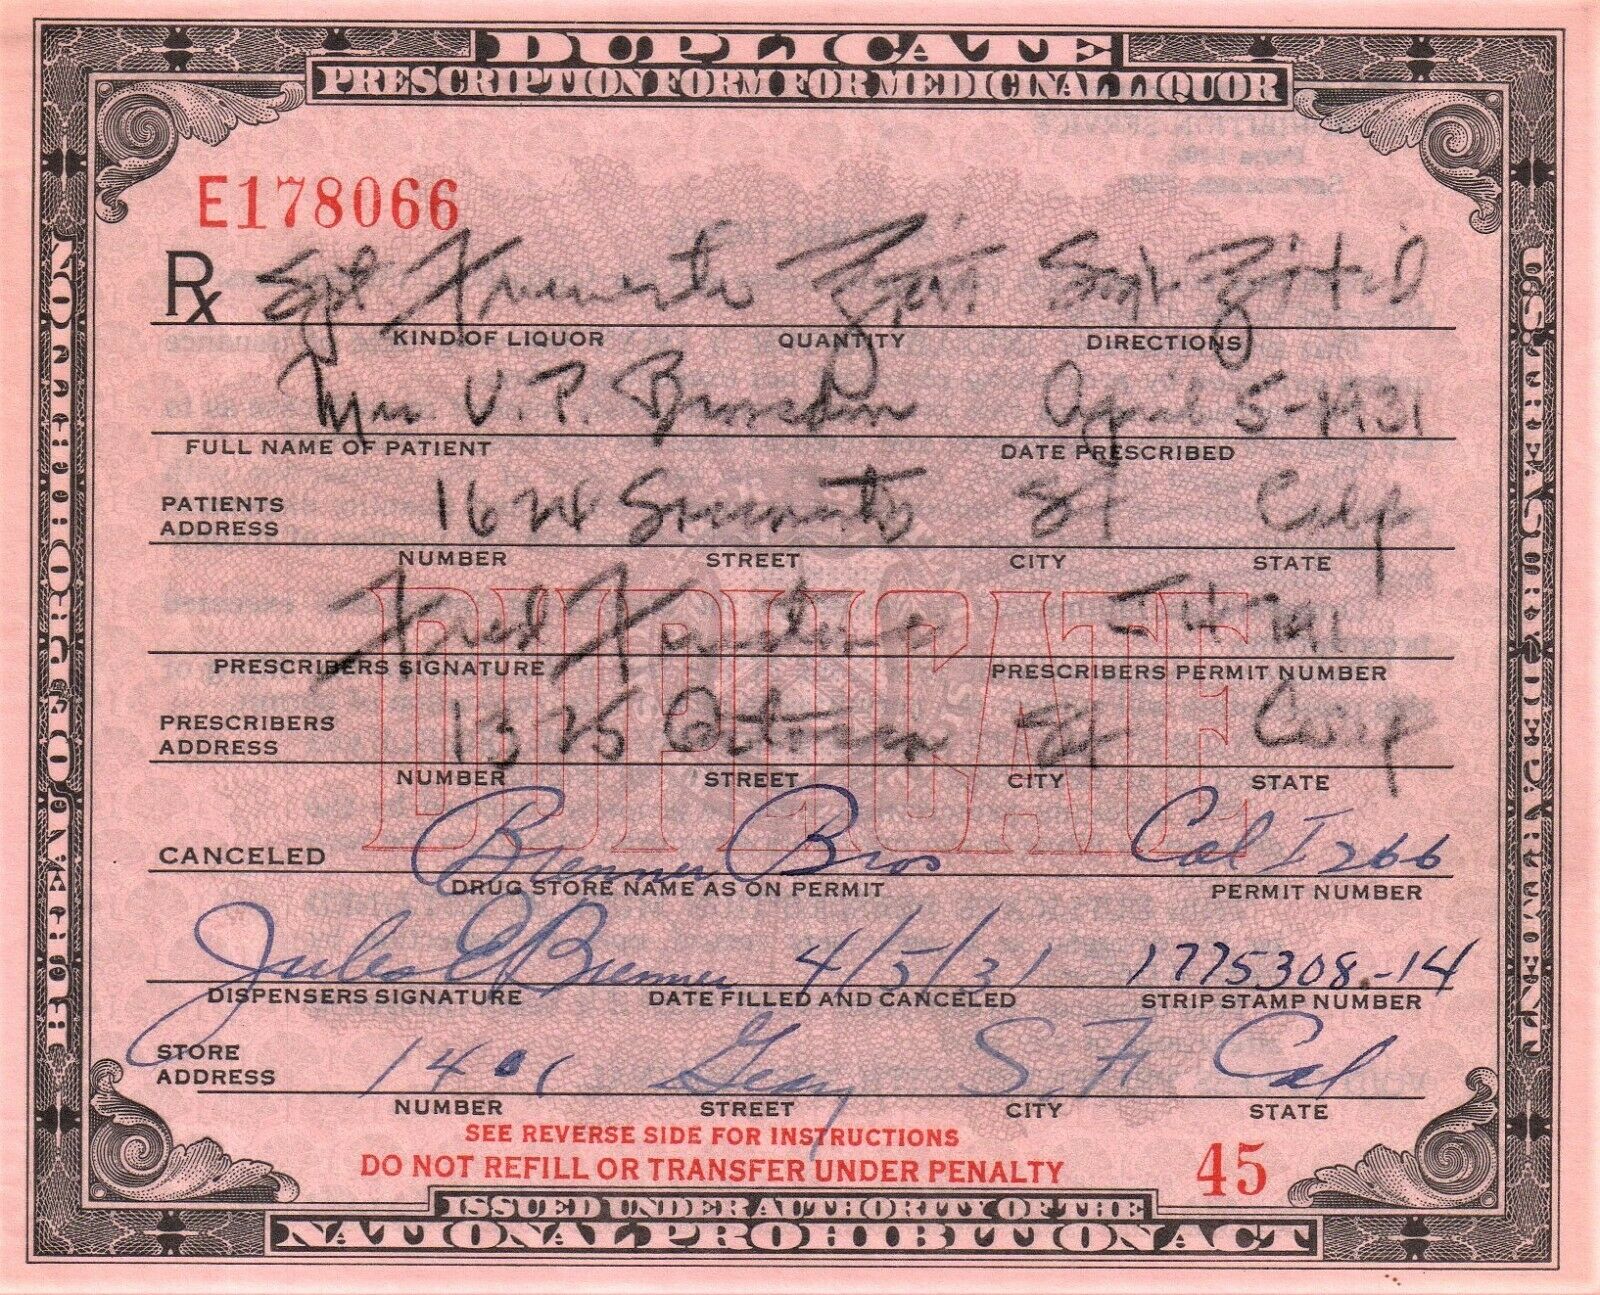 DUPLICATE
PRESCRIPTION FORM FOR MEDICINAL LIQUOR
E178066
Rx Spt Frumenti
KIND OF LIQUOR QUANTITY DIRECTIONS
Mrs V. P. April 5-1931
FULL NAME OF PATIENT DATE PRESCRIBED
PATIENTS ADDRESS 1624 Sacramento St
NUMBER STREET CITY STATE
DUPLICATE
Fred
PRESCRIBERS SIGNATURE PRESCRIBERS PERMIT NUMBER
PRESCRIBERS ADDRESS 1325 St
NUMBER STREET CITY STATE
CANCELED Brenner Bros Cal I 266
DRUG STORE NAME AS ON PERMIT PERMIT NUMBER
Jules E Brenner 4/5/31 1775308-14
DISPENSERS SIGNATURE DATE FILLED AND CANCELED STRIP STAMP NUMBER
STORE ADDRESS 1401 Geary S.F. Cal
NUMBER STREET CITY STATE
SEE REVERSE SIDE FOR INSTRUCTIONS
DO NOT REFILL OR TRANSFER UNDER PENALTY
45
ISSUED UNDER AUTHORITY OF THE
NATIONAL PROHIBITION ACT
U.S. TREASURY DEPARTMENT